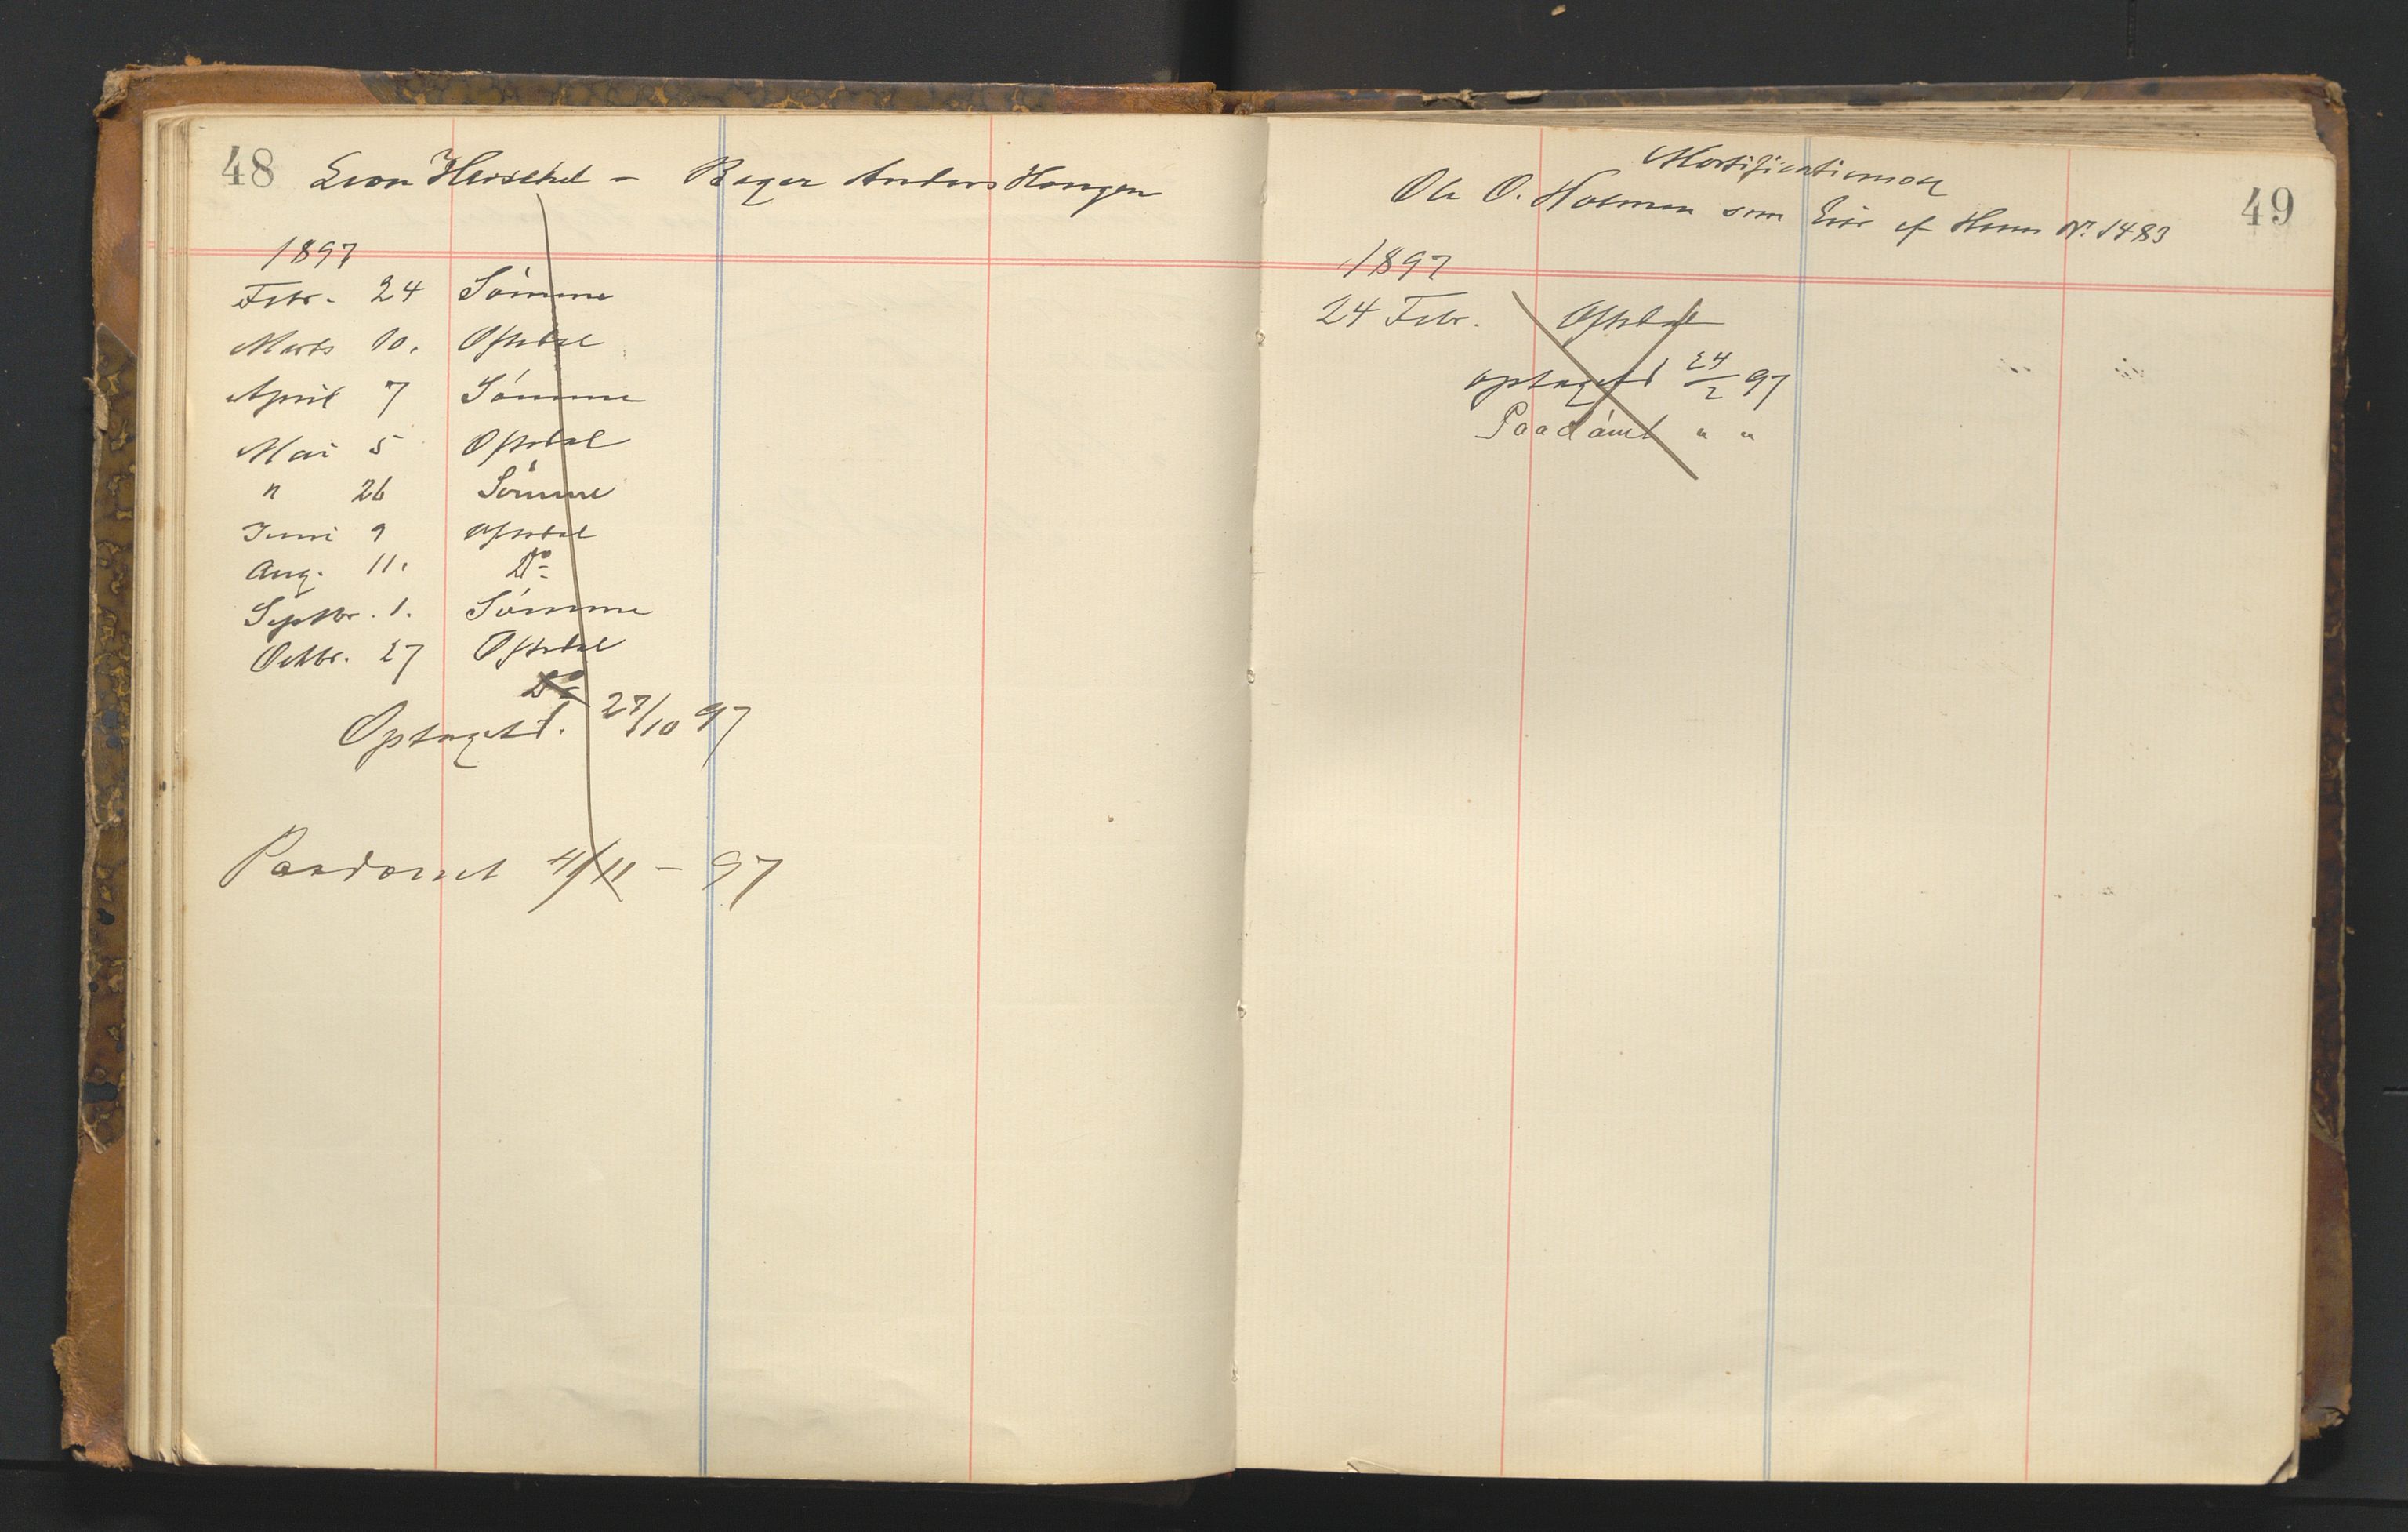 48
Leon Herschel - Bager Anders Haugen
1897
Febr. 24 Sömme
Marts 10. Oftedal
April 7 Sömme
Mai 5 Oftedal
" 26 Sömme
Juni 9 Oftedal
Aug. 11. Do
Septbr. 1. Sömme
Octbr. 27 Oftedal
Do
Optaget d. 27/10 97
Paadömt 4/11 - 97
49
Mortifications
Ole O. Holmen som Eier af Huus No. 1483
1897
24 Febr. Oftedal
optaget d 24/2 97
Paadömt " "